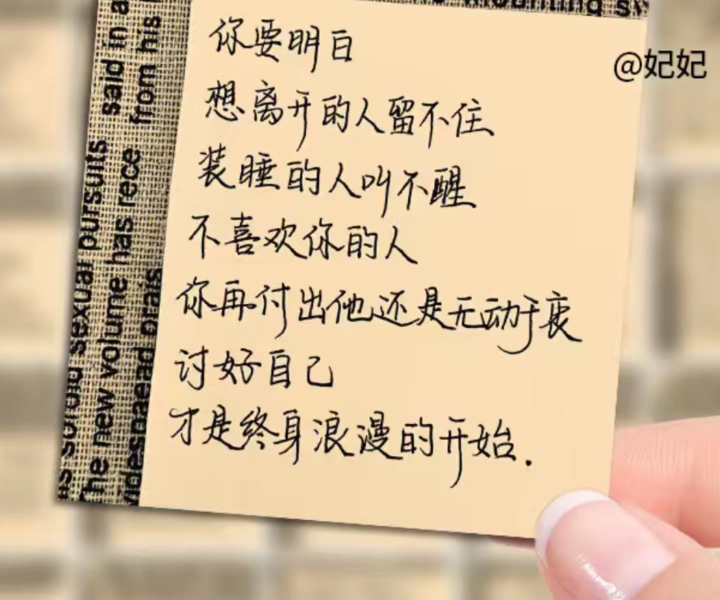 你要明白
@妃妃
想离开的人留不住
装睡的人叫不醒
不喜欢你的人
你再付出他还是无动于衷
讨好自己
才是终身浪漫的开始.
said in a
from his
sordid sexual pursuits
The new volume has rece